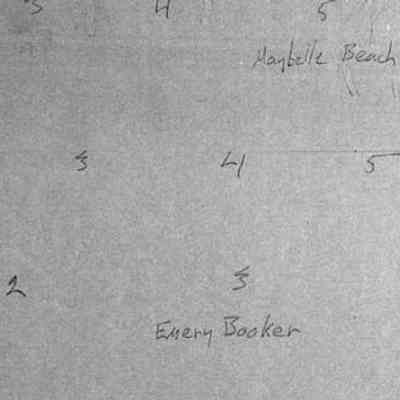 3 4 5
Maybelle Beach
3 4 5
2 3
Emery Booker